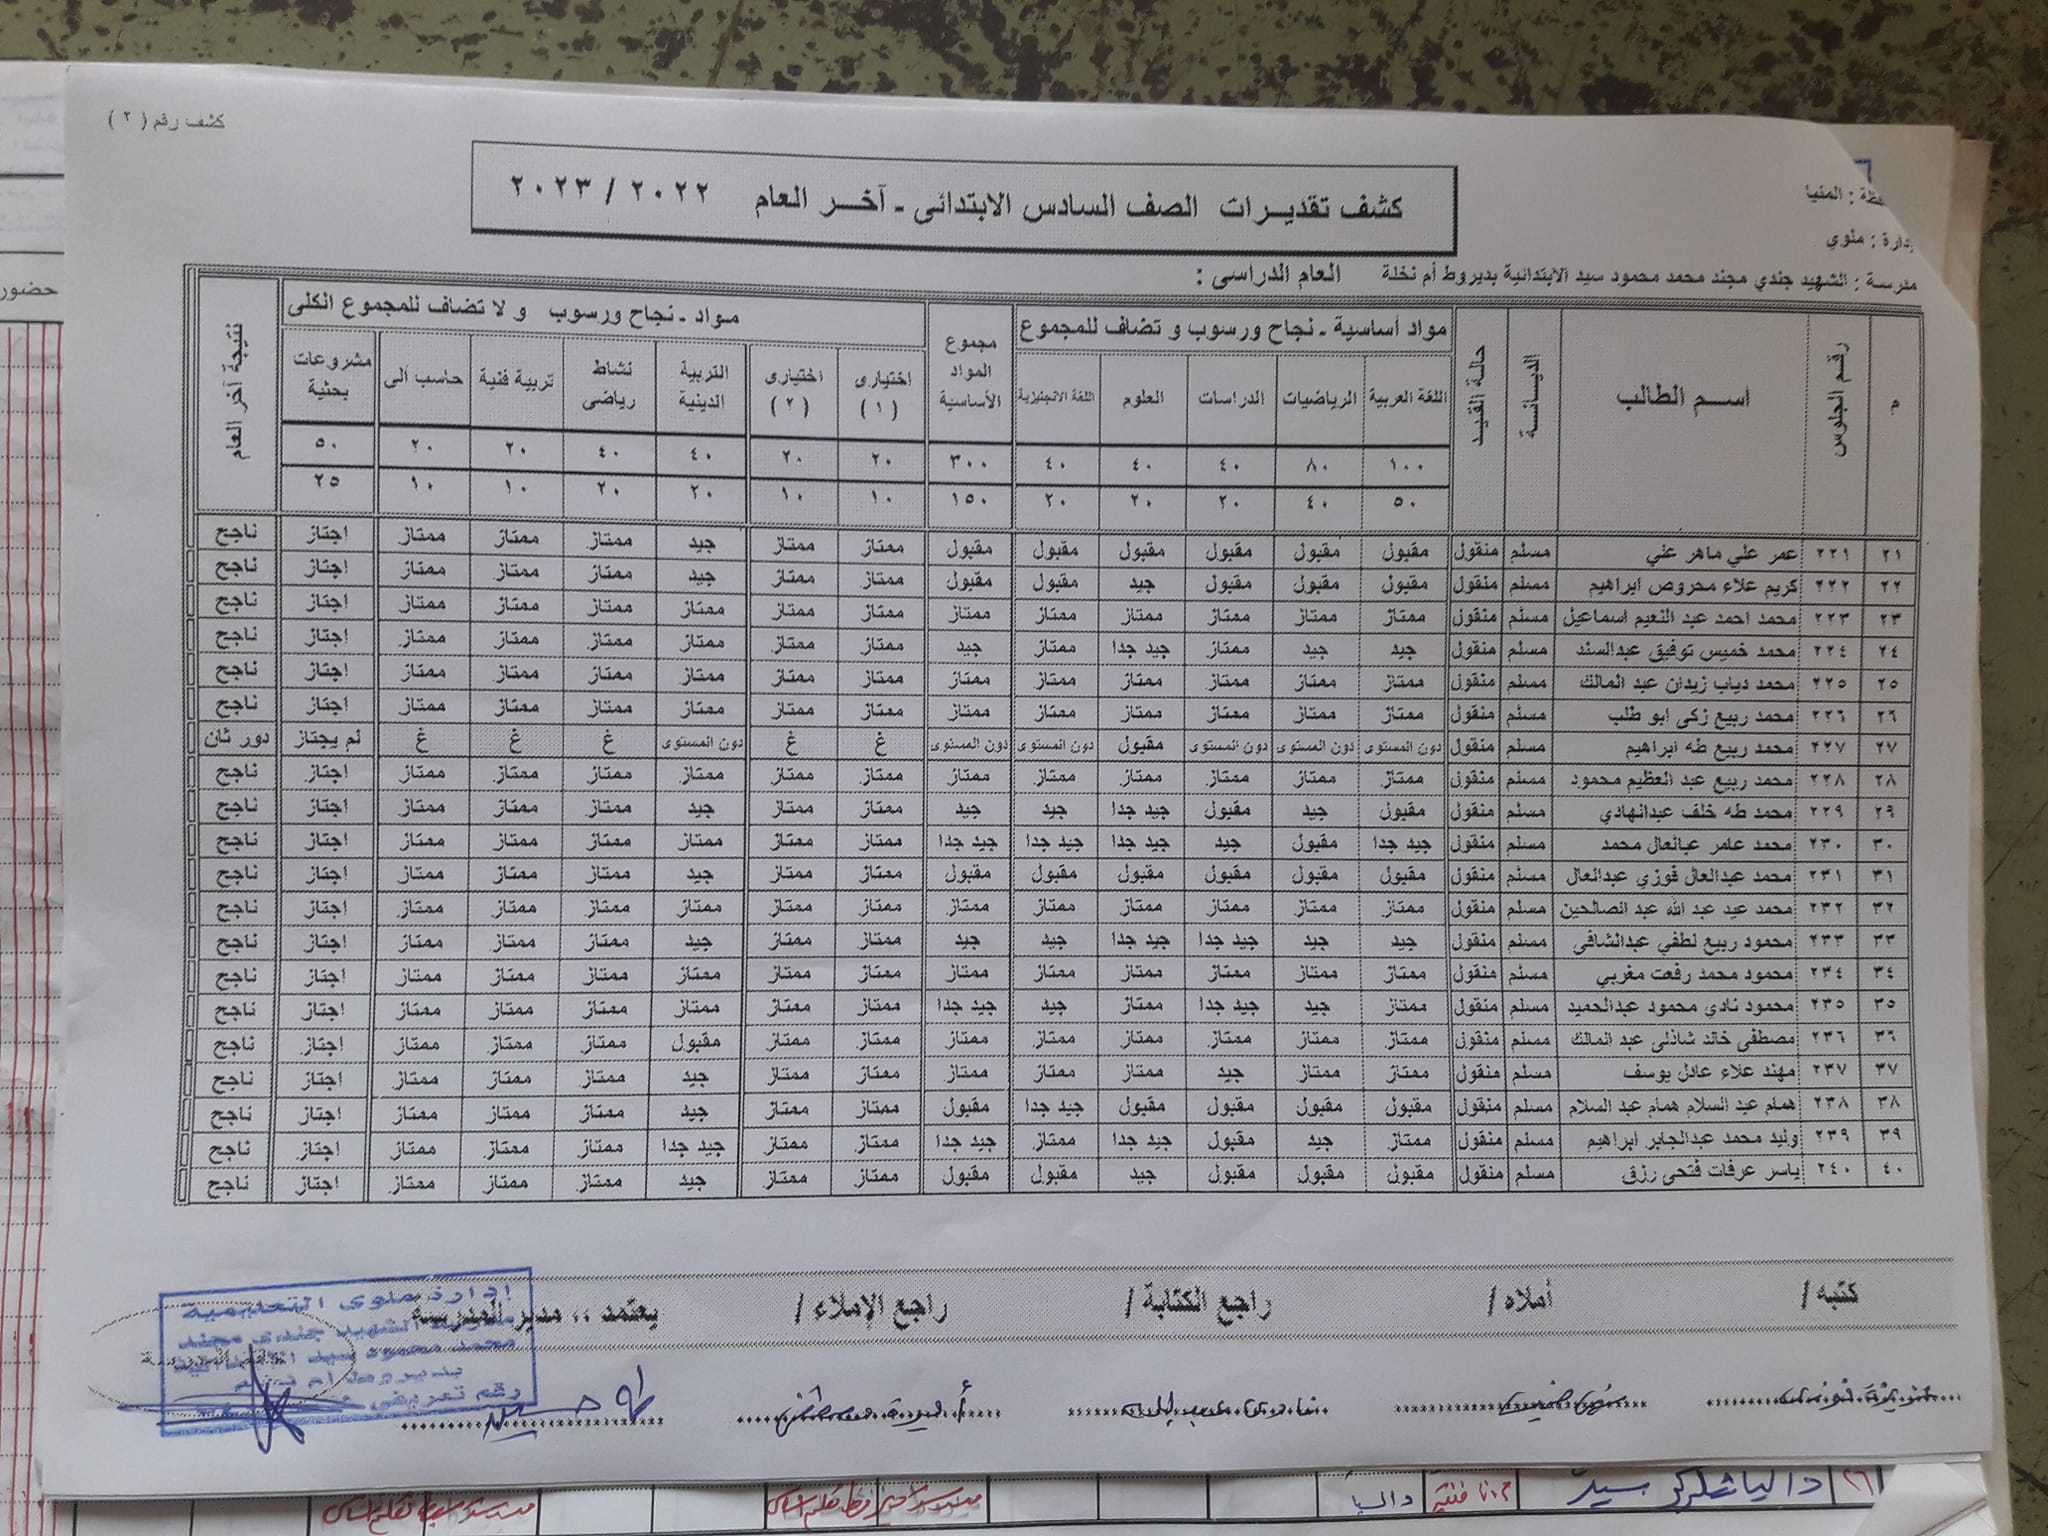 كشف رقم ( ٢ )
كشف تقديرات الصف السادس الابتدائى - آخر العام ٢٠٢٢ / ٢٠٢٣
المنيا
إدارة : ملوي
مدرسة : الشهيد جندي مجند محمد محمود سيد الابتدائية بديروط أم نخلة العام الدراسى :
م رقم الجلوس اسم الطالب الديانة حالة القيد مواد أساسية - نجاح ورسوب و تضاف للمجموع مجموع المواد الأساسية مواد - نجاح ورسوب و لا تضاف للمجموع الكلى نتيجة آخر العام
اللغة العربية الرياضيات الدراسات العلوم اللغة الانجليزية اختيارى (١) اختيارى (٢) التربية الدينية نشاط رياضى تربية فنية حاسب ألى مشروعات بحثية
١٠٠ ٨٠ ٤٠ ٤٠ ٤٠ ٣٠٠ ٢٠ ٢٠ ٤٠ ٤٠ ٢٠ ٢٠ ٥٠
٥٠ ٤٠ ٢٠ ٢٠ ٢٠ ١٥٠ ١٠ ١٠ ٢٠ ٢٠ ١٠ ١٠ ٢٥
٢١ ٢٢١ عمر علي ماهر علي مسلم منقول مقبول مقبول مقبول مقبول مقبول مقبول ممتاز ممتاز جيد ممتاز ممتاز ممتاز اجتاز ناجح
٢٢ ٢٢٢ كريم علاء محروص ابراهيم مسلم منقول مقبول مقبول مقبول جيد مقبول مقبول ممتاز ممتاز جيد ممتاز ممتاز ممتاز اجتاز ناجح
٢٣ ٢٢٣ محمد احمد عبد النعيم اسماعيل مسلم منقول ممتاز ممتاز ممتاز ممتاز ممتاز ممتاز ممتاز ممتاز ممتاز ممتاز ممتاز ممتاز اجتاز ناجح
٢٤ ٢٢٤ محمد خميس توفيق عبدالسند مسلم منقول جيد جيد ممتاز جيد جدا ممتاز جيد ممتاز ممتاز ممتاز ممتاز ممتاز ممتاز اجتاز ناجح
٢٥ ٢٢٥ محمد دياب زيدان عبد المالك مسلم منقول ممتاز ممتاز ممتاز ممتاز ممتاز ممتاز ممتاز ممتاز ممتاز ممتاز ممتاز ممتاز اجتاز ناجح
٢٦ ٢٢٦ محمد ربيع زكى ابو طلب مسلم منقول ممتاز ممتاز ممتاز ممتاز ممتاز ممتاز ممتاز ممتاز ممتاز ممتاز ممتاز ممتاز اجتاز ناجح
٢٧ ٢٢٧ محمد ربيع طه ابراهيم مسلم منقول دون المستوى دون المستوى دون المستوى مقبول دون المستوى دون المستوى غ غ دون المستوى غ غ غ لم يجتاز دور ثان
٢٨ ٢٢٨ محمد ربيع عبد العظيم محمود مسلم منقول ممتاز ممتاز ممتاز ممتاز ممتاز ممتاز ممتاز ممتاز ممتاز ممتاز ممتاز ممتاز اجتاز ناجح
٢٩ ٢٢٩ محمد طه خلف عبدالهادي مسلم منقول مقبول جيد مقبول جيد جدا جيد جيد ممتاز ممتاز جيد ممتاز ممتاز ممتاز اجتاز ناجح
٣٠ ٢٣٠ محمد عامر عبالعال محمد مسلم منقول جيد جدا مقبول جيد جيد جدا جيد جدا جيد جدا ممتاز ممتاز ممتاز ممتاز ممتاز ممتاز اجتاز ناجح
٣١ ٢٣١ محمد عبدالعال فوزي عبدالعال مسلم منقول مقبول مقبول مقبول مقبول مقبول مقبول ممتاز ممتاز جيد ممتاز ممتاز ممتاز اجتاز ناجح
٣٢ ٢٣٢ محمد عيد عبد الله عبد الصالحين مسلم منقول ممتاز ممتاز ممتاز ممتاز ممتاز ممتاز ممتاز ممتاز ممتاز ممتاز ممتاز ممتاز اجتاز ناجح
٣٣ ٢٣٣ محمود ربيع لطفي عبدالشافى مسلم منقول جيد جيد جيد جدا جيد جدا جيد جيد ممتاز ممتاز جيد ممتاز ممتاز ممتاز اجتاز ناجح
٣٤ ٢٣٤ محمود محمد رفعت مغربي مسلم منقول ممتاز ممتاز ممتاز ممتاز ممتاز ممتاز ممتاز ممتاز ممتاز ممتاز ممتاز ممتاز اجتاز ناجح
٣٥ ٢٣٥ محمود نادي محمود عبدالحميد مسلم منقول ممتاز جيد جيد جدا ممتاز جيد جيد جدا ممتاز ممتاز ممتاز ممتاز ممتاز ممتاز اجتاز ناجح
٣٦ ٢٣٦ مصطفى خالد شاذلى عبد المالك مسلم منقول ممتاز ممتاز ممتاز ممتاز ممتاز ممتاز ممتاز ممتاز مقبول ممتاز ممتاز ممتاز اجتاز ناجح
٣٧ ٢٣٧ مهند علاء عادل يوسف مسلم منقول ممتاز ممتاز جيد ممتاز ممتاز ممتاز ممتاز ممتاز جيد ممتاز ممتاز ممتاز اجتاز ناجح
٣٨ ٢٣٨ همام عبد السلام همام عبد السلام مسلم منقول مقبول مقبول مقبول مقبول جيد جدا مقبول ممتاز ممتاز جيد ممتاز ممتاز ممتاز اجتاز ناجح
٣٩ ٢٣٩ وليد محمد عبدالجابر ابراهيم مسلم منقول ممتاز جيد مقبول جيد جدا ممتاز جيد جدا ممتاز ممتاز جيد جدا ممتاز ممتاز ممتاز اجتاز ناجح
٤٠ ٢٤٠ ياسر عرفات فتحى رزق مسلم منقول مقبول مقبول مقبول جيد مقبول مقبول ممتاز ممتاز جيد ممتاز ممتاز ممتاز اجتاز ناجح
كتبه / أملاه / راجع الكتابة / راجع الإملاء / يعتمد ،، مدير المدرسة
إدارة ملوى التعليمية
مدرسة الشهيد جندى مجند
محمد محمود سيد الابتدائية
بديروط ام نخلة
رقم تعريفى
حضور
٢٦ داليا شكر سيد